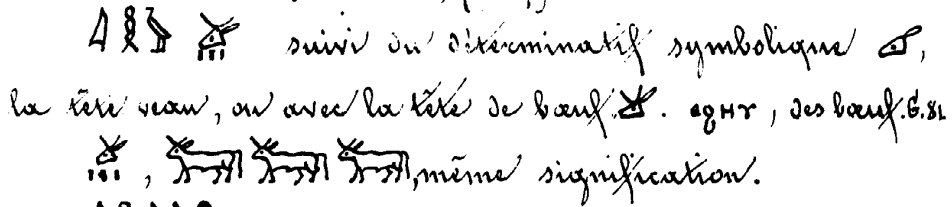 suivi du déterminatif symbolique ,
la tête veau, ou avec la tête de bœuf . ⲉϩⲏⲩ, des bœuf. G. 81
, même signification.